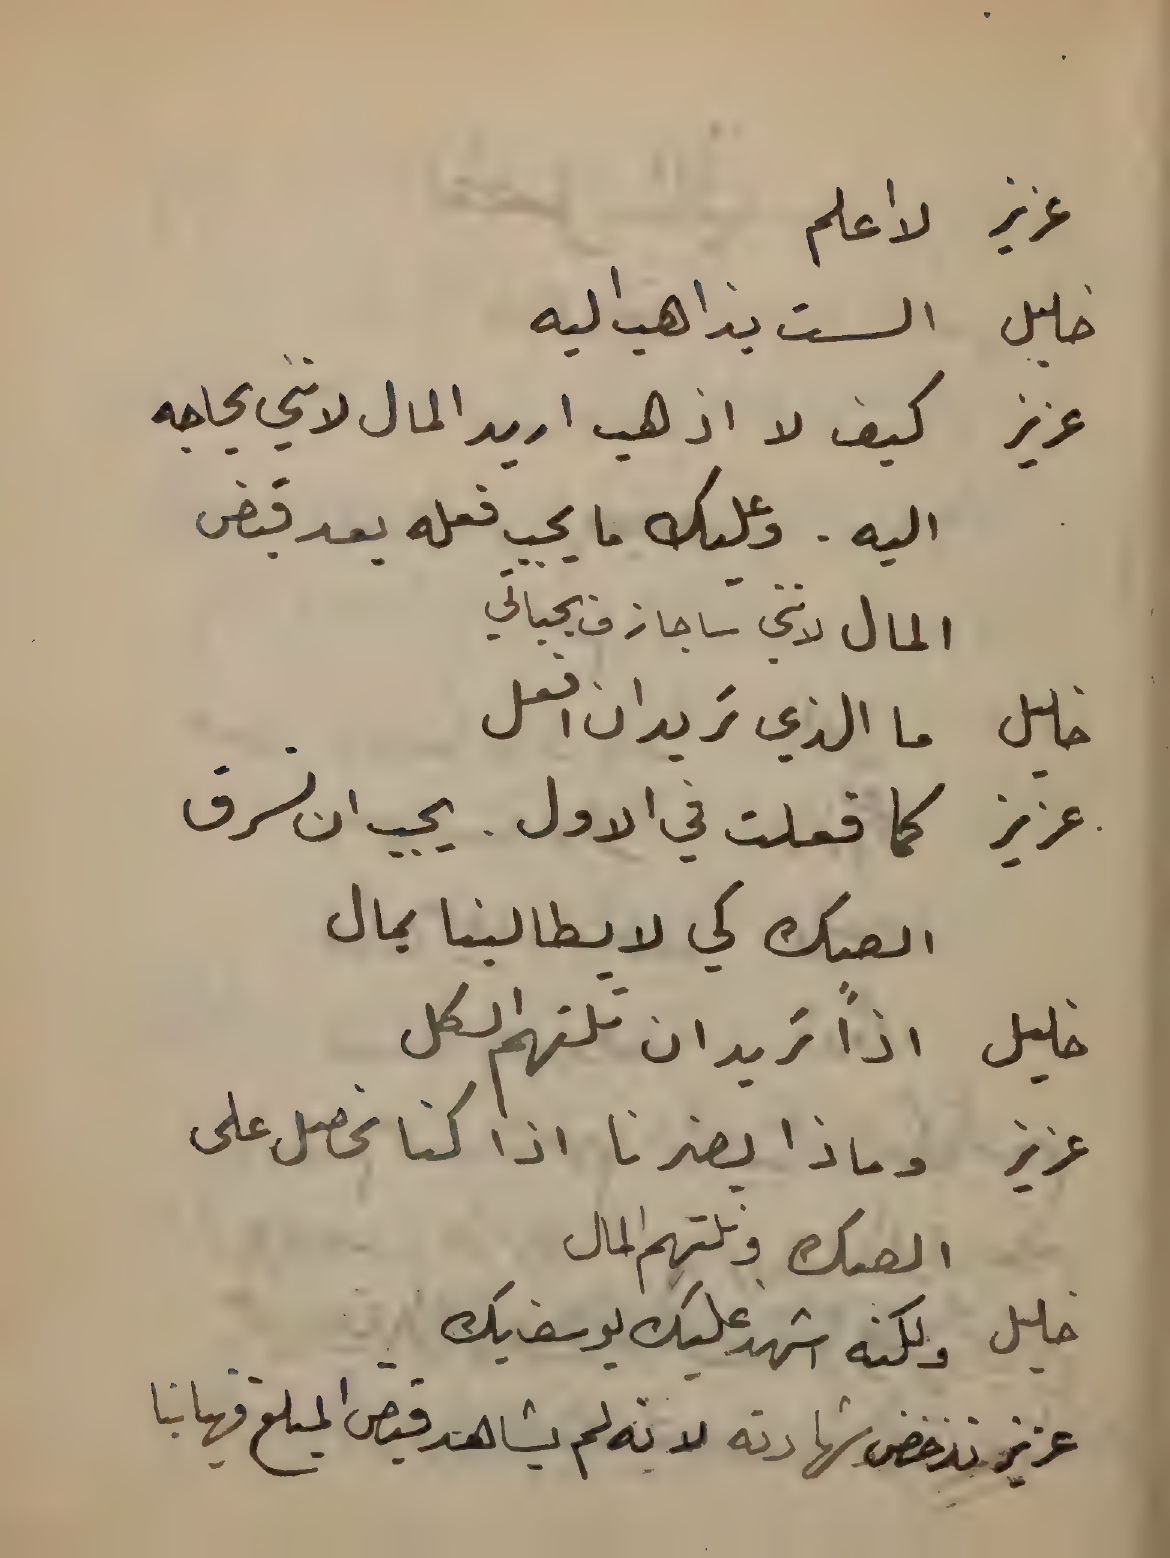 عزيز لا اعلم
خليل الست بذاهب اليه
عزيز كيف لا اذهب اريد المال لانني بحاجه
اليه . وعليك ما يجب فعله بعد قبض
المال لانني ساجازف بحياتي
خليل ما الذي تريد ان افعل
عزيز كما فعلت في الاول . يجب ان تسرق
الصك كي لا يطالبنا بمال
خليل اذاً تريد ان تلتهم الكل
عزيز وماذا يضرنا اذا كنا نحصل على
الصك ونلتهم المال
خليل ولكنه اشهد عليك يوسف بك
عزيز شهادته لانه لم يشاهد قبض المبلغ فهيا بنا